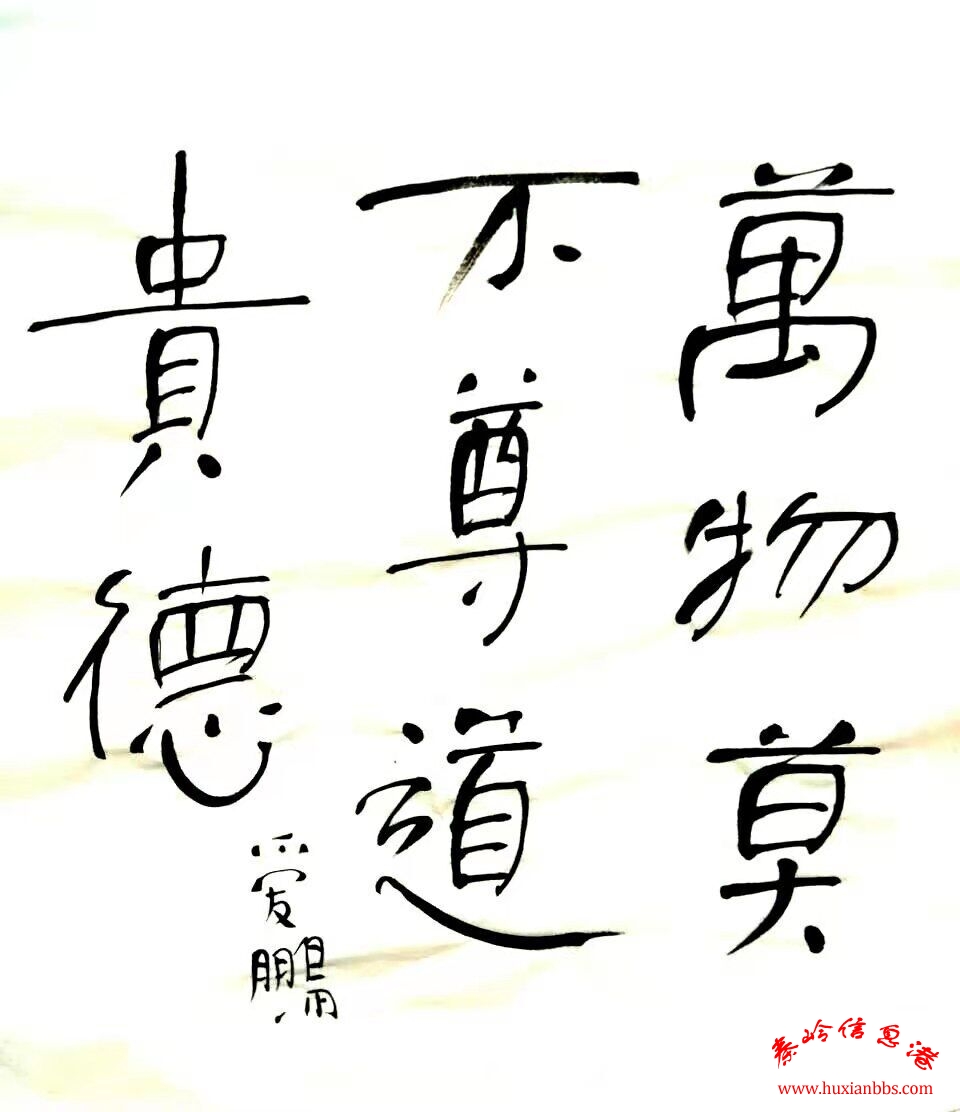 萬物莫
不尊道
貴德
爱鵬
秦岭信息港
www.huxianbbs.com